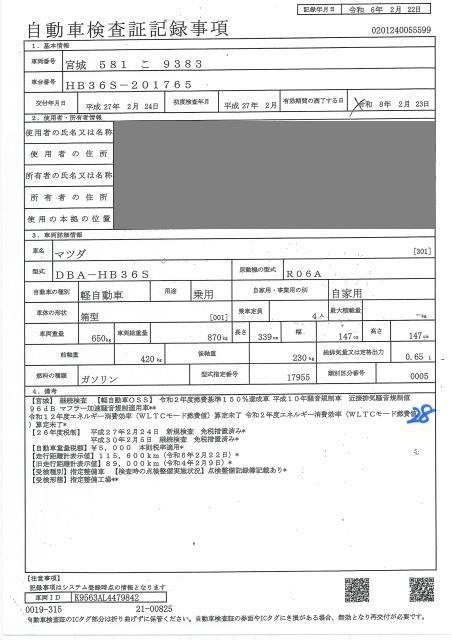 記録年月日 令和 6年 2月 22日
自動車検査証記録事項
0201240055599
1. 基本情報
車両番号 宮城 581 こ 9383
車台番号 HB36S-201765
交付年月日 平成 27年 2月 24日 初度検査年月 平成 27年 2月 有効期間の満了する日 令和 8年 2月 23日
2. 使用者・所有者情報
使用者の氏名又は名称
使用者の住所
所有者の氏名又は名称
所有者の住所
使用の本拠の位置
3. 車両詳細情報
車名 マツダ [301]
型式 DBA-HB36S 原動機の型式 R06A
自動車の種別 軽自動車 用途 乗用 自家用・事業用の別 自家用
車体の形状 箱型 [001] 乗車定員 4人 最大積載量 -kg
車両重量 650kg 車両総重量 870kg 長さ 339cm 幅 147cm 高さ 147cm
前軸重 420kg 後軸重 230kg 総排気量又は定格出力 0.65 l
燃料の種類 ガソリン 型式指定番号 17955 類別区分番号 0005
4. 備考
【宮城】 継続検査 【軽自動車OSS】 令和2年度燃費基準150%達成車 平成10年騒音規制車 近接排気騒音規制値
96dB マフラー加速騒音規制適用車**
令和12年度エネルギー消費効率(WLTCモード燃費値)算定未了 令和2年度エネルギー消費効率(WLTCモード燃費値)
算定未了*
28
【26年度税制】 平成27年2月24日 新規検査 免税措置済み*
平成30年2月5日 継続検査 免税措置済み*
【自動車重量税額】¥5,000 本則税率適用*
【走行距離計表示値】115,600km(令和6年2月22日)*
【旧走行距離計表示値】89,000km(令和4年2月9日)*
【受検種別】指定整備車 【検査時の点検整備実施状況】点検整備記録簿記載あり*
【受検形態】指定整備工場**
【注意事項】
記録事項はシステム登録時点の情報となります
車両ID K9563AL4479842
0019-315 21-00825
自動車検査証のICタグ部分は折り曲げずに保管ください。自動車検査証の券面やICタグにき損がある場合、無効となり再交付が必要です。